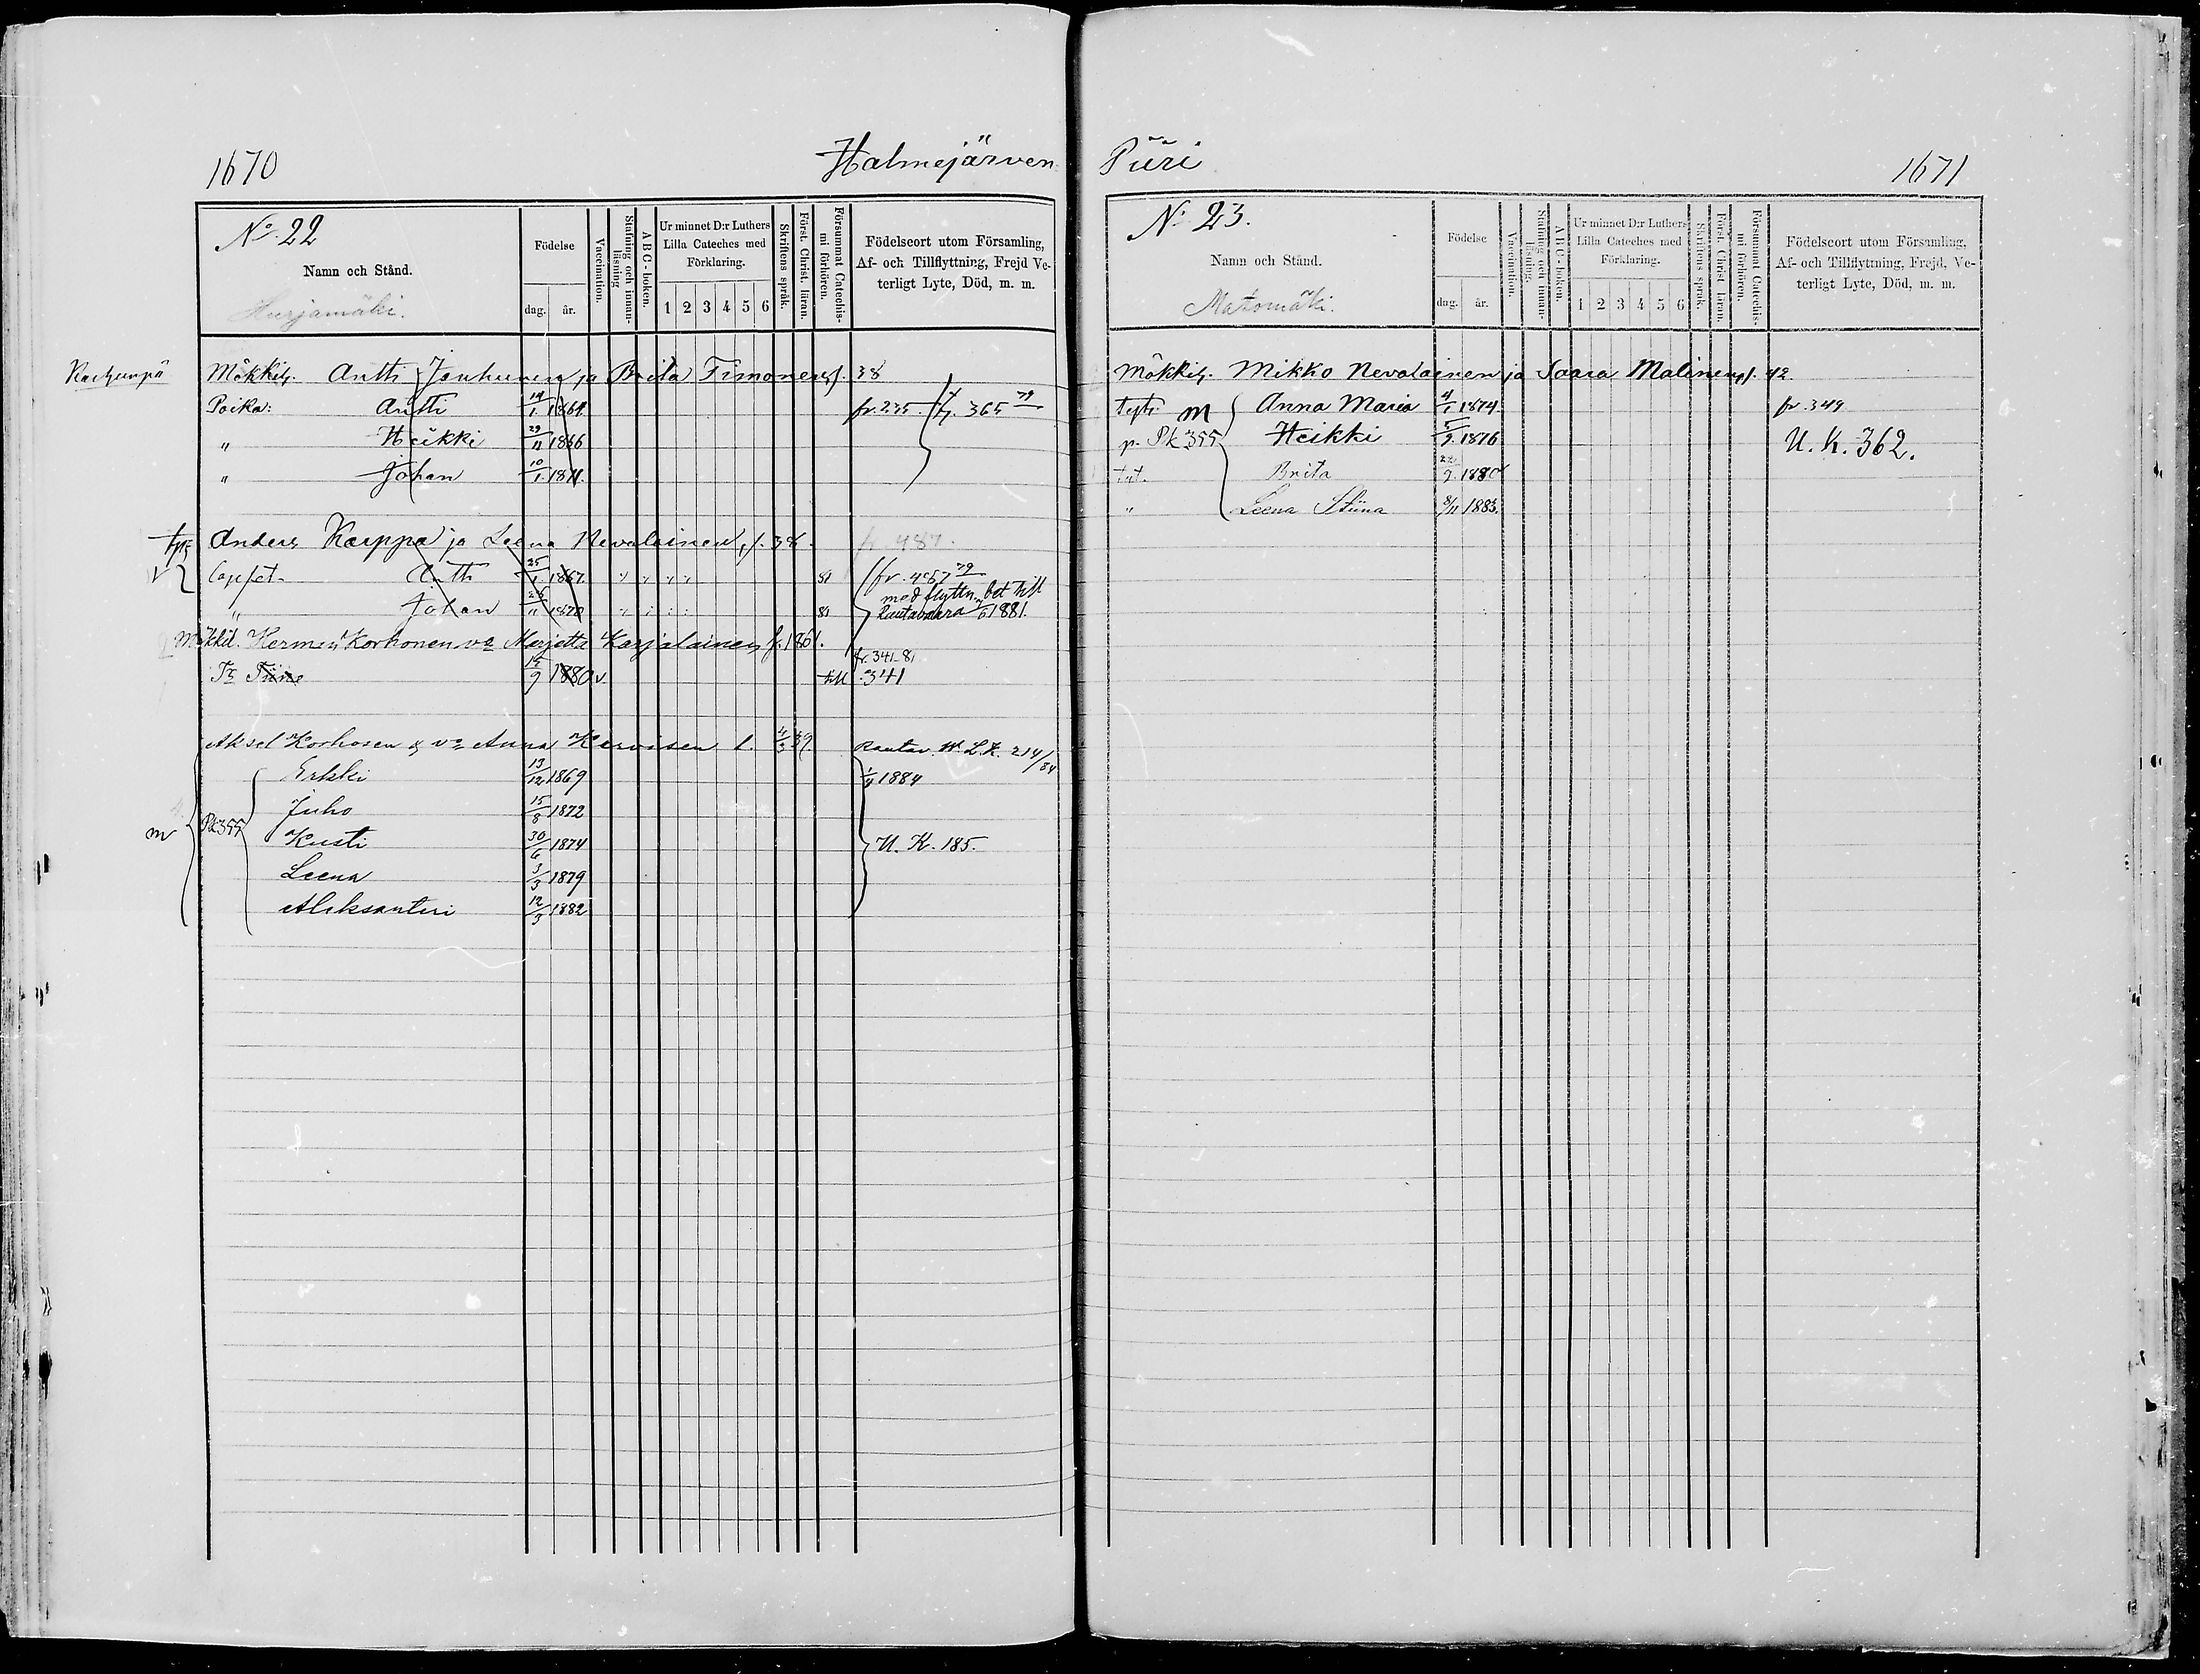 1670
Halmejärven
No. 22
Namn och Stånd.
Hurjamäki.
Födelse
dag.
år.
Vaccination.
Stafning och innan-läsning
A B C - boken.
Ur minnet D:r Luthers Lilla Cateches med Förklaring.
1 2 3 4 5 6
Skriftens språk.
Först. Christ. läran.
Försummat Catechis-mi förhören.
Födelseort utom Församling, Af- och Tillflyttning, Frejd Ve-terligt Lyte, Död, m. m.
Mökkil. Antti Jonhunen ja Brita Timonen, f. 38
Poika: Antti 14/1 1864. fr. 235. 365 79
" Heikki 29/11 1866
" Johan 10/1 1871.
Anders Karppa ja Leena Nevalainen, f. 38.
fr. 487.
Lapset. Antti 25/1 1867. 81 fr. 467 79
med flyttn. bet till
" Johan 11 1870 81 Rautavaara 1881.
Mökkil. Herman Korhonen va Marjetta Karjalainen f. 1861.
fr. 341-81
Tr Tiina 14/9 1880 v. till 341
Aksel Korhosen & va Anna Hirvisen l. 4/3 39. Rautav. M. L. K. 214/84
Erkki 13/12 1869 1/4 1884
Juho 15/8 1872
m Pk 355
Kusti 30/6 1874 U. K. 185.
Leena 3/3 1879
Aleksanteri 12/3 1882
Piiri
1671
No. 23.
Namn och Stånd.
Matomäki.
Födelse
dag.
år.
Vaccination.
Stafning och innan-läsning.
A B C - boken.
Ur minnet D:r Luthers Lilla Cateches med Förklaring.
1 2 3 4 5 6
Skriftens språk.
Först. Christ läran.
Försummat Catechis-mi förhören.
Födelseort utom Församling, Af- och Tillflyttning, Frejd, Ve-terligt Lyte, Död, m. m.
Mökkil. Mikko Nevalainen ja Saara Malinen, f. 42.
tyt: m Anna Maria 4/1 1874. fr. 349
p. Pk 355 Heikki 5/9. 1876 U. K. 362.
tyt. Brita 22/9. 1880
" Leena Stiina 8/11 1883.